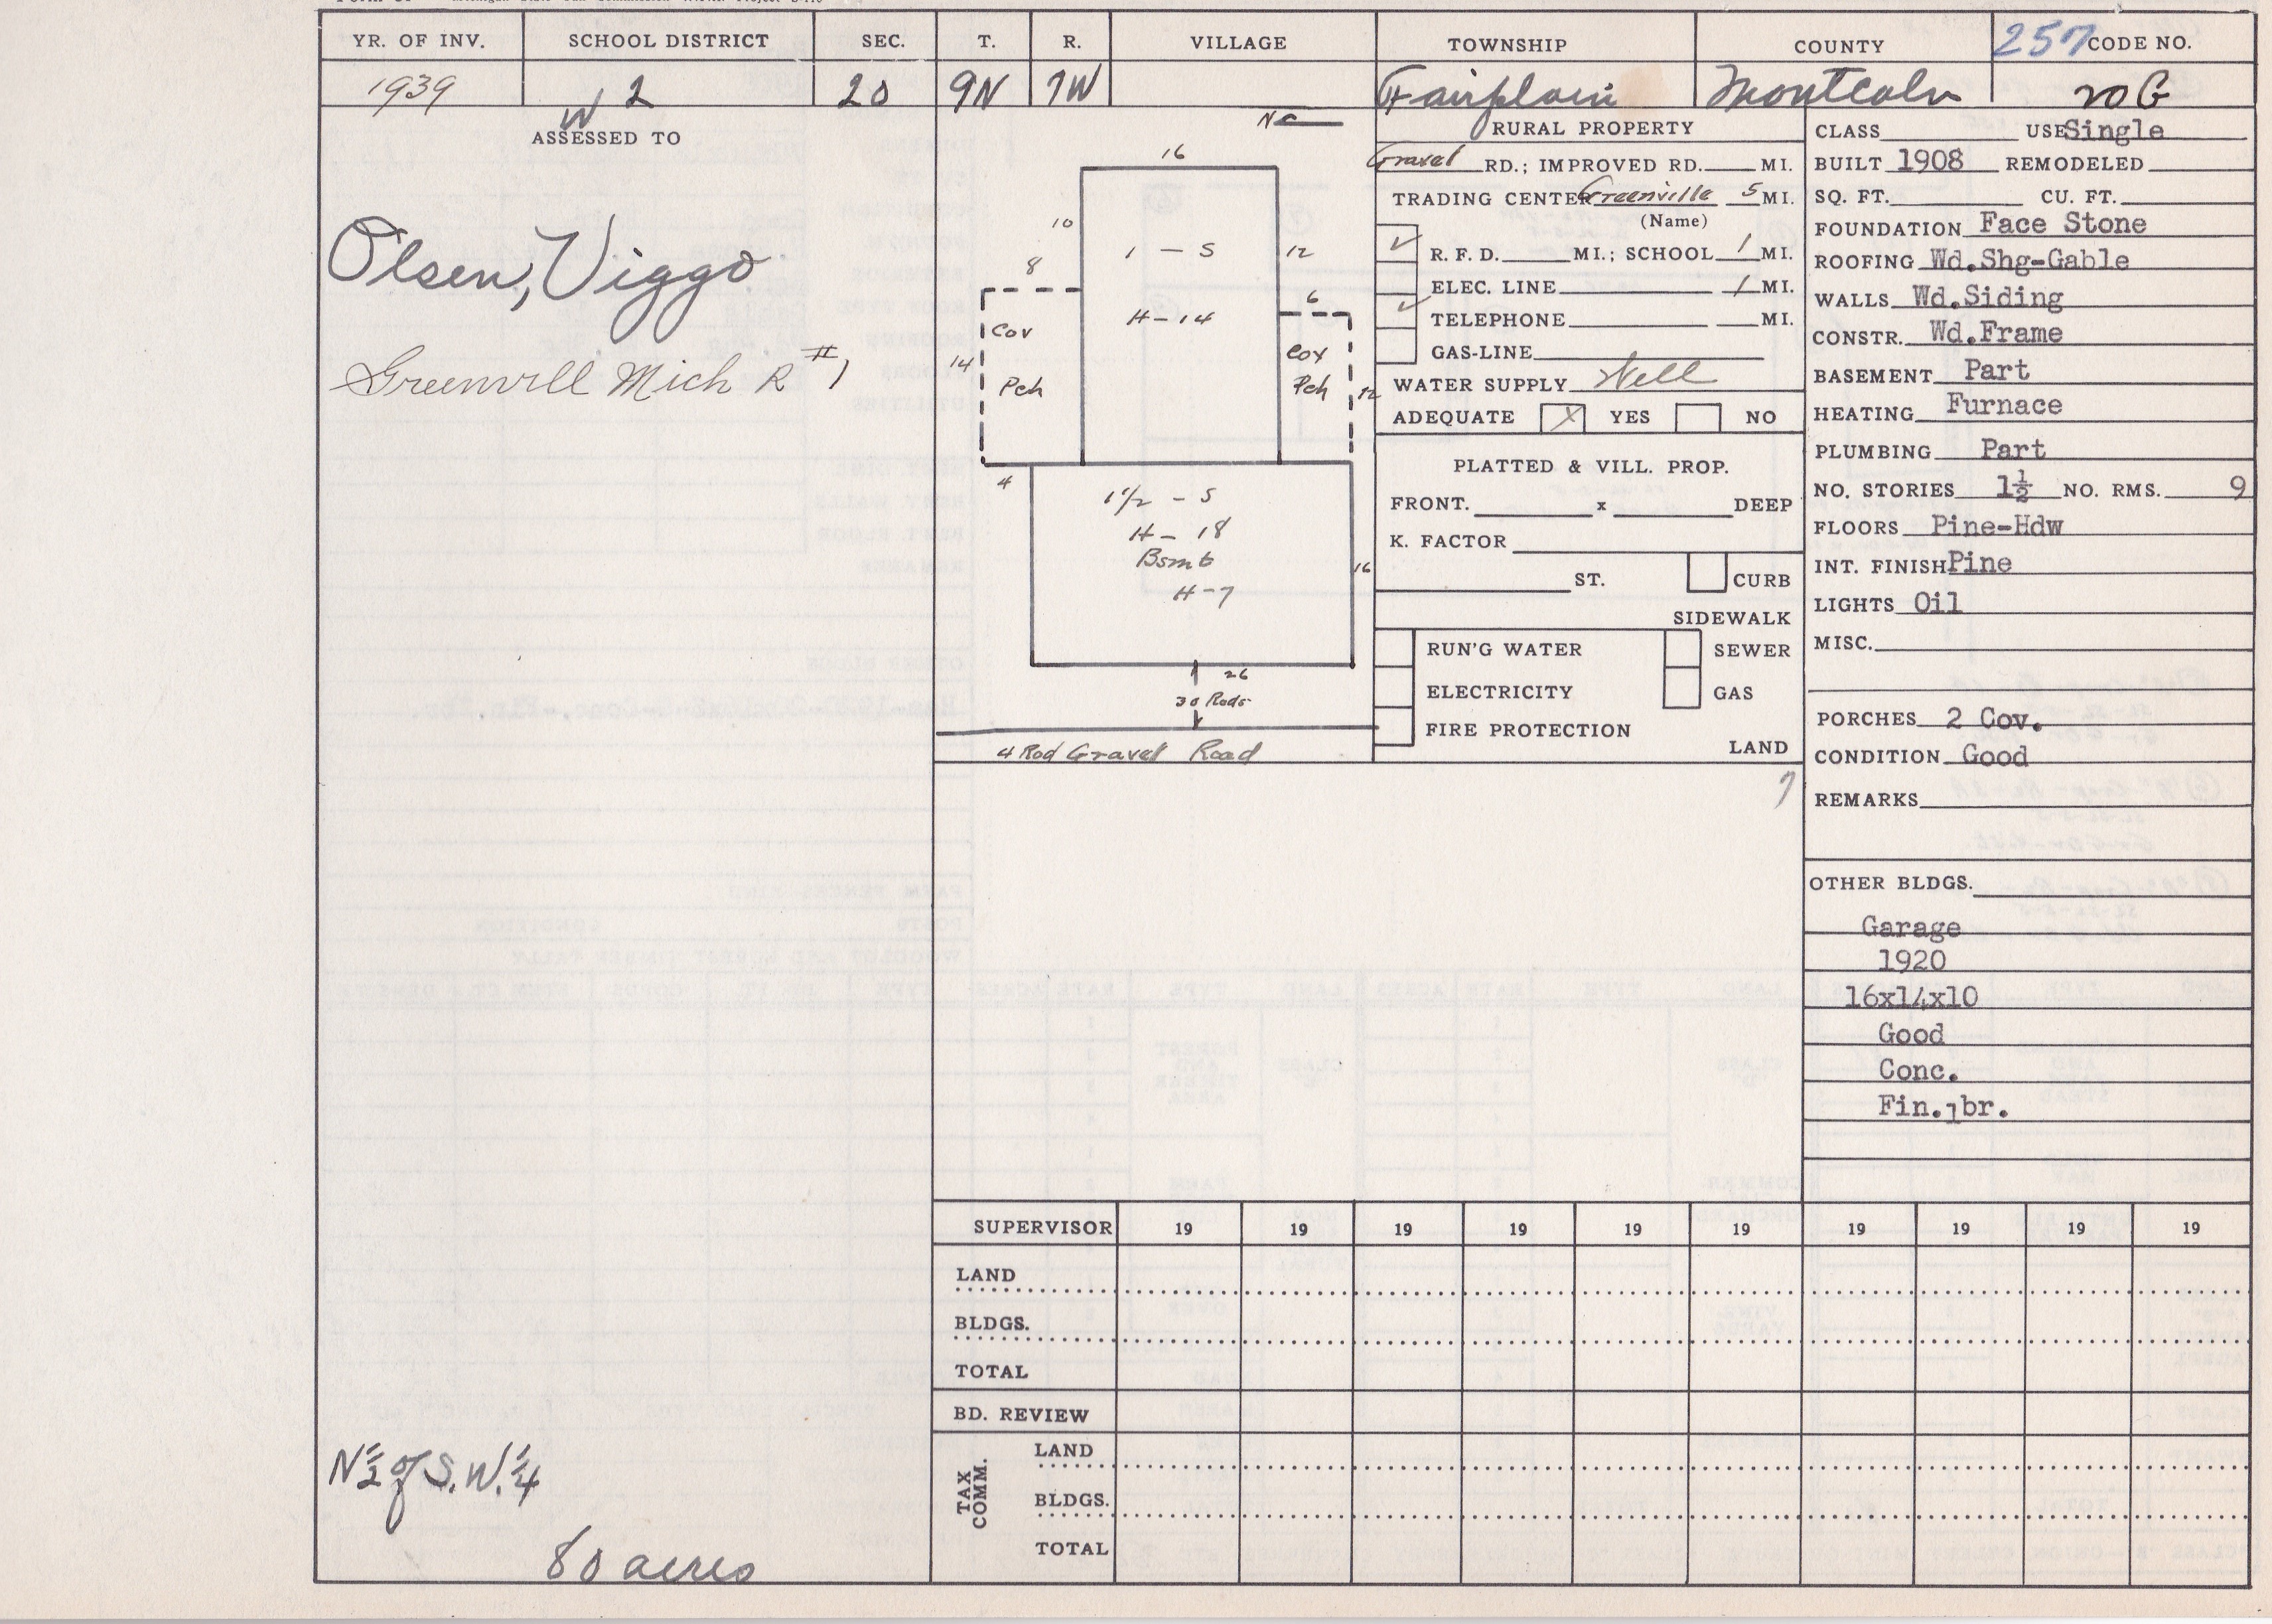 YR. OF INV. SCHOOL DISTRICT SEC. T. R. VILLAGE TOWNSHIP COUNTY 257 CODE NO.
1939 2 20 9N 7W Fairplain Montcalm 20 G
W
ASSESSED TO
Olsen, Viggo
Greenvill Mich R #1
N½ of S.W.¼
80 acres
16
10
1 - S
12
8
6
H - 14
Cov
Pch
14
Cov
Pch
12
4
1½ - S
H - 18
Bsmt
H - 7
16
26
30 Rods
4 Rod Gravel Road
RURAL PROPERTY
Gravel RD.; IMPROVED RD. MI.
TRADING CENTER Greenville 5 MI.
(Name)
✓ R. F. D. MI.; SCHOOL 1 MI.
ELEC. LINE 1 MI.
✓ TELEPHONE MI.
GAS-LINE
WATER SUPPLY Well
ADEQUATE X YES NO
PLATTED & VILL. PROP.
FRONT. x DEEP
K. FACTOR
ST. CURB
SIDEWALK
RUN'G WATER SEWER
ELECTRICITY GAS
FIRE PROTECTION
LAND
CLASS USE Single
BUILT 1908 REMODELED
SQ. FT. CU. FT.
FOUNDATION Face Stone
ROOFING Wd.Shg-Gable
WALLS Wd.Siding
CONSTR. Wd.Frame
BASEMENT Part
HEATING Furnace
PLUMBING Part
NO. STORIES 1½ NO. RMS. 9
FLOORS Pine-Hdw
INT. FINISH Pine
LIGHTS Oil
MISC.
PORCHES 2 Cov.
CONDITION Good
REMARKS
OTHER BLDGS.
Garage
1920
16x14x10
Good
Conc.
Fin. br.
SUPERVISOR 19 19 19 19 19 19 19 19 19 19
LAND
BLDGS.
TOTAL
BD. REVIEW
TAX COMM.
LAND
BLDGS.
TOTAL